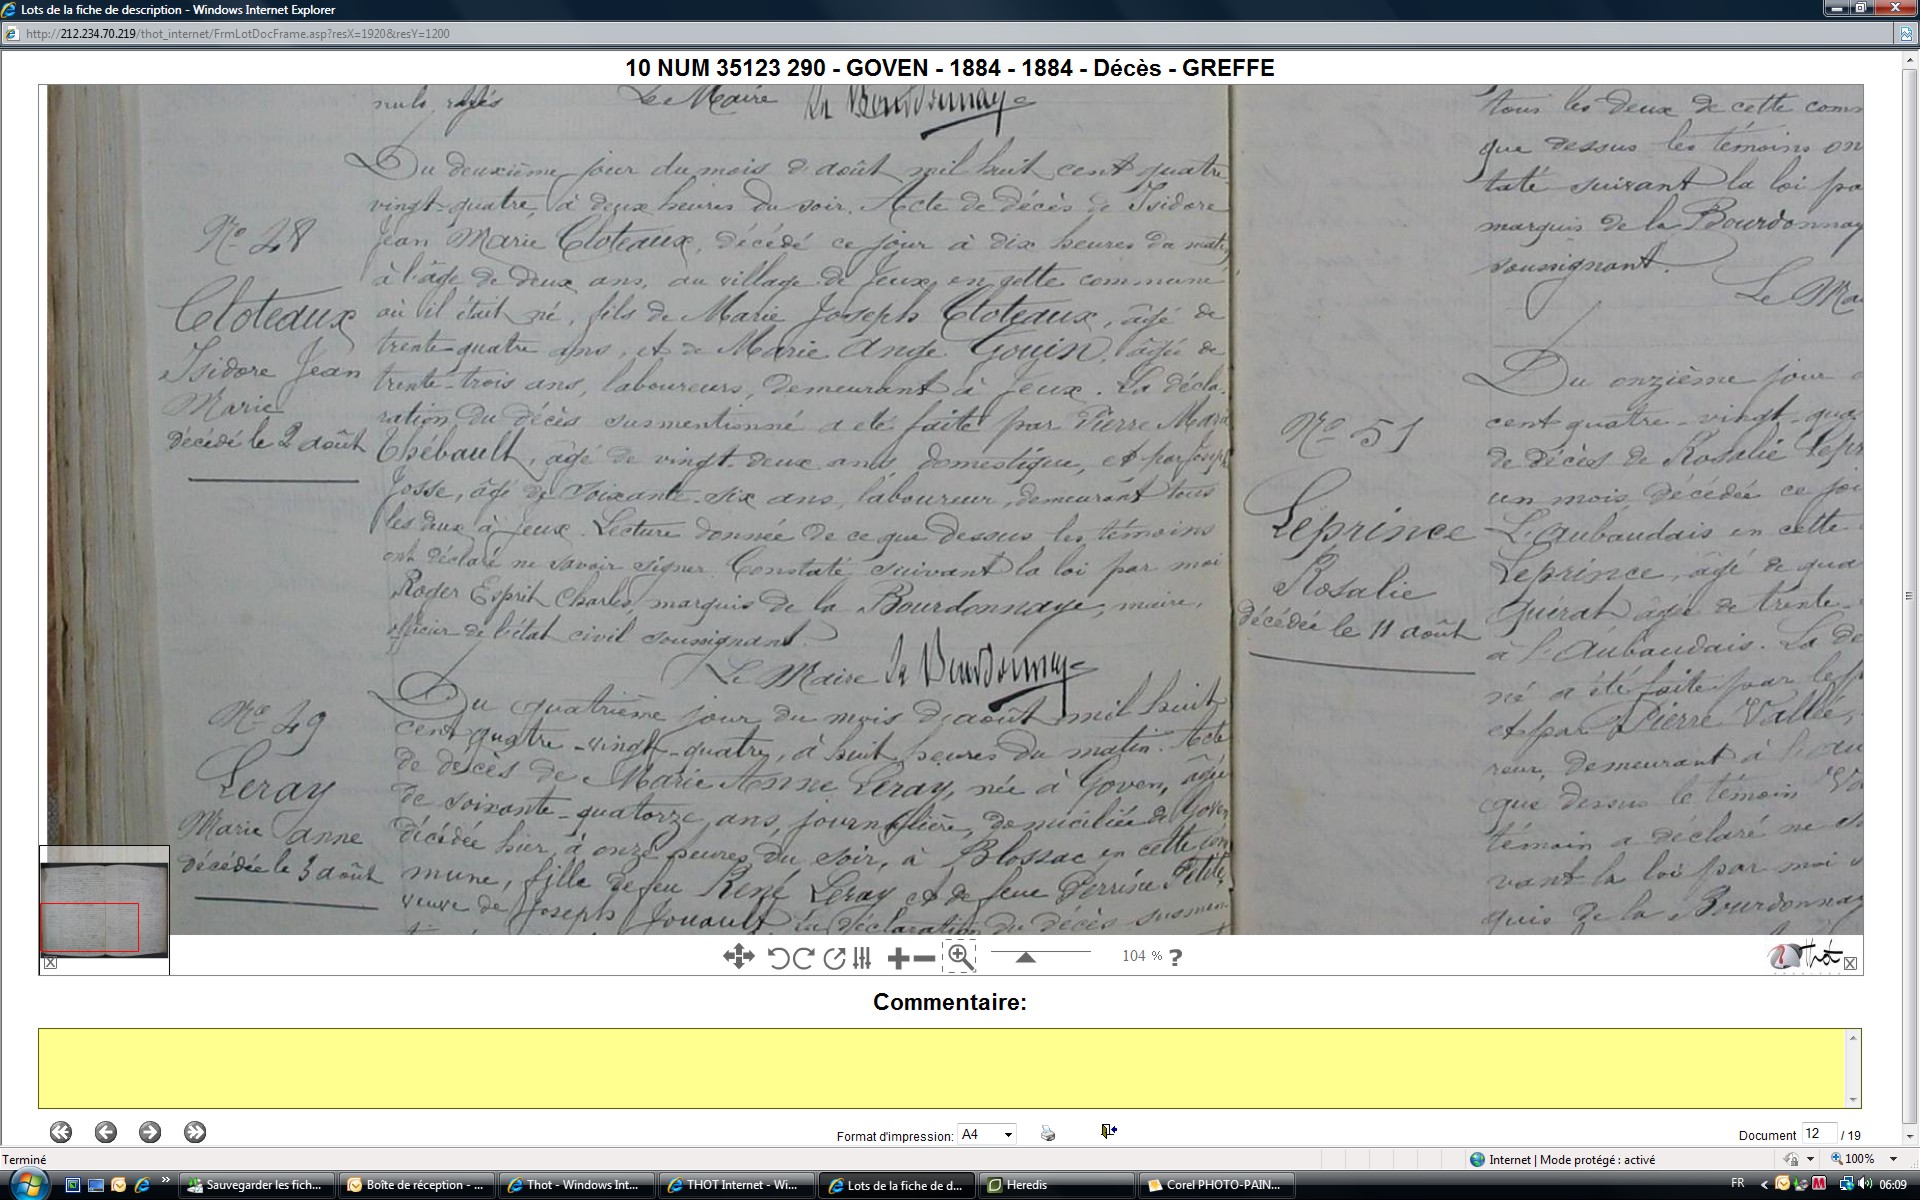 Lots de la fiche de description - Windows Internet Explorer
http://212.234.70.219/thot_internet/FrmLotDocFrame.asp?resX=1920&resY=1200
10 NUM 35123 290 - GOVEN - 1884 - 1884 - Décès - GREFFE
nuls rayés Le Maire La Bourdonnaye
Du deuxième jour du mois d'août mil huit cent quatre
vingt-quatre, à deux heures du soir. Acte de décès de Isidore
Jean Marie Cloteaux, décédé ce jour à dix heures du matin
à l'âge de deux ans, au village de Jeux, en cette commune
où il était né, fils de Marie Joseph Cloteaux, âgé de
trente-quatre ans, et de Marie Ange Gouin, âgée de
trente-trois ans, laboureurs, demeurant à Jeux. La décla-
ration du décès susmentionné a été faite par Pierre Marie
Thébault, âgé de vingt-deux ans, domestique, et par Joseph
Josse, âgé de soixante-six ans, laboureur, demeurant tous
les deux à Jeux. Lecture donnée de ce que dessus les témoins
ont déclaré ne savoir signer. Constaté suivant la loi par moi
Roger Esprit Charles, marquis de la Bourdonnaye, maire,
officier de l'état civil soussignant.
Le Maire La Bourdonnaye
No 48
Cloteaux
Isidore Jean
Marie
décédé le 2 août
Du quatrième jour du mois d'août mil huit
cent quatre-vingt-quatre, à huit heures du matin. Acte
de décès de Marie Anne Leray, née à Goven, âgée
de soixante-quatorze ans, journalière, domiciliée à Goven
décédée hier, à onze heures du soir, à Blossac en cette com
mune, fille de feu René Leray et de feue Perrine Petit,
veuve de Joseph Jouault. La déclaration du décès susmen
No 49
Leray
Marie Anne
décédée le 3 août
tous les deux de cette com
que dessus les témoins on
taté suivant la loi pa
marquis de la Bourdonnay
soussignant.
Le Ma
No 51
Leprince
Rosalie
décédée le 11 août
Du onzième jour
cent quatre-vingt-qua
de décès de Rosalie Lepr
un mois, décédée ce jo
L'Aubaudais en cette
Leprince, âgé de qua
Guérat âgée de trente-
à l'Aubaudais. La dé
né a été faite par le p
et par Pierre Vallée,
reur, demeurant à l'au
que dessus le témoin Va
témoin a déclaré ne s
vant la loi par moi
quis de la Bourdonnay
104 % ?
Thot
Commentaire:
Format d'impression: A4
Document 12 / 19
Terminé
Internet | Mode protégé : activé
100%
Sauvegarder les fich...
Boîte de réception - ...
Thot - Windows Int...
THOT Internet - Wi...
Lots de la fiche de d...
Heredis
Corel PHOTO-PAIN...
FR
06:09